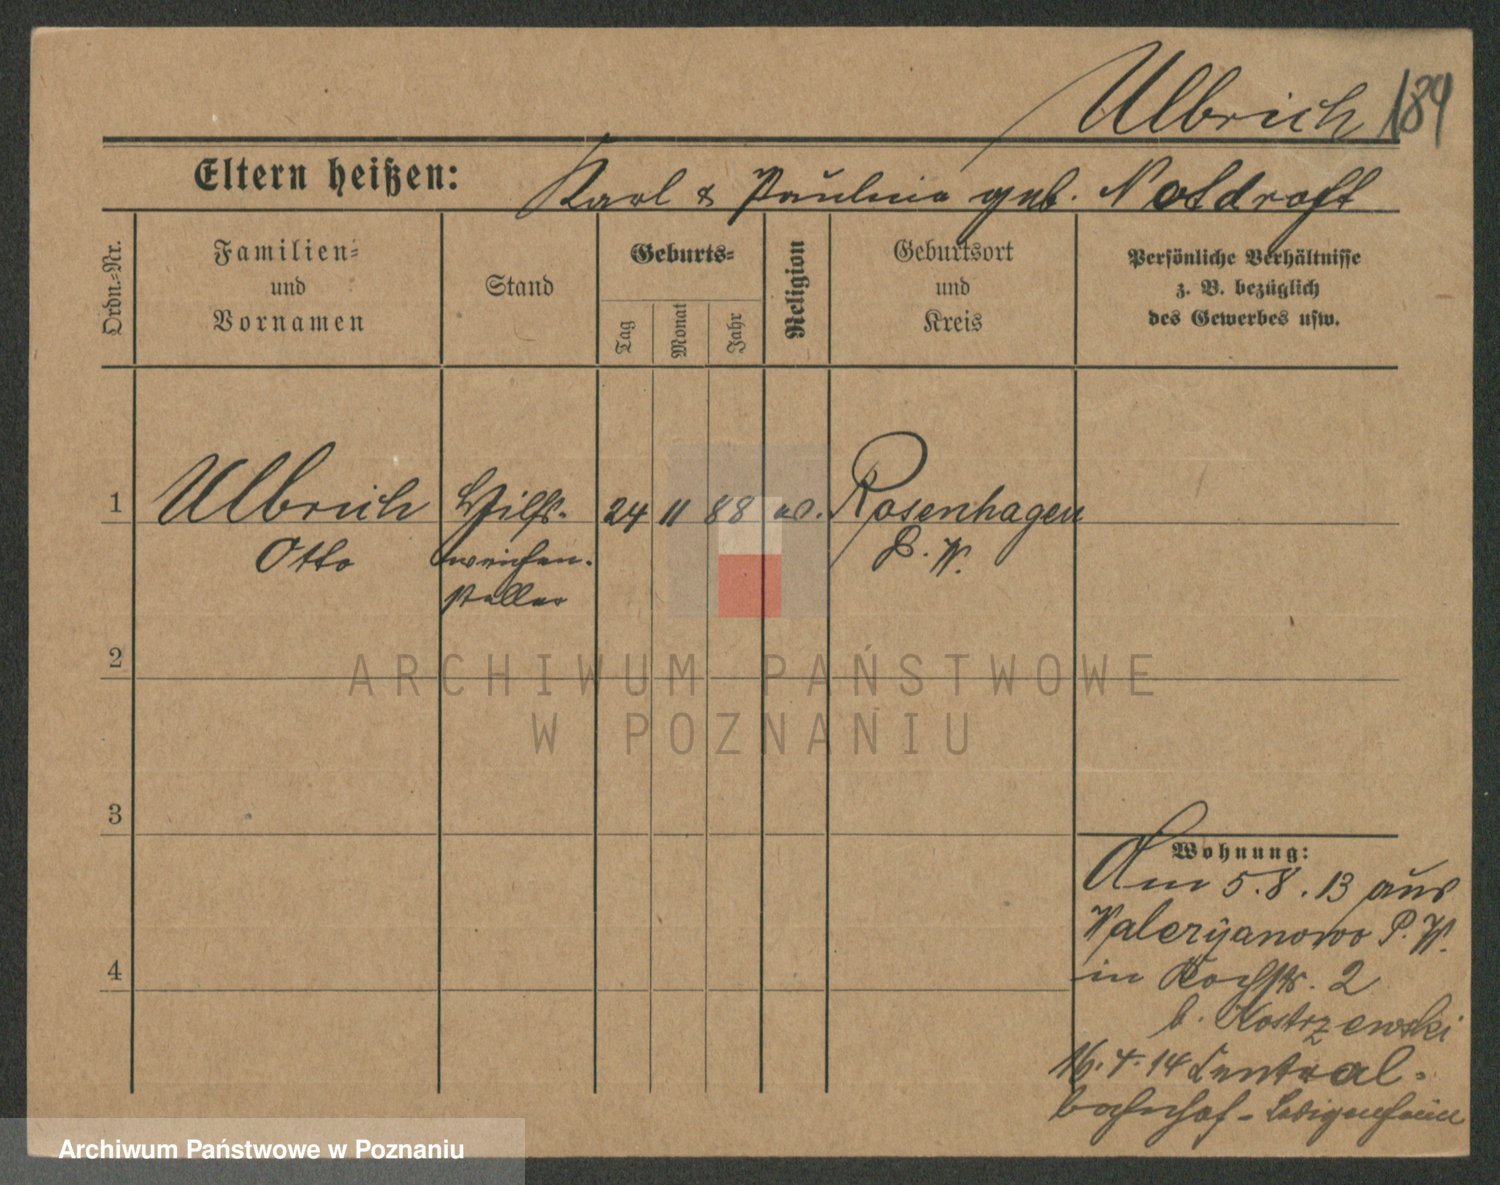 Ulbrich 184
Eltern heißen: Karl & Paulina geb. Notdroft
Ordn.-Nr.
Familien-
und
Vornamen
Stand
Geburts-
Tag
Monat
Jahr
Religion
Geburtsort
und
Kreis
Persönliche Verhältnisse
z. B. bezüglich
des Gewerbes usw.
1 Ulbrich Hilfs- 24 11 88 Rosenhagen
Otto weichen- P. W.
steller
2
3
4
Wohnung:
Am 5.8.13 aus
Valeryanowo P. W.
in Kochstr. 2
b. Kostrzewski
16.4.14 Central-
bahnhof - Ledigenheim
ARCHIWUM PAŃSTWOWE
W POZNANIU
Archiwum Państwowe w Poznaniu